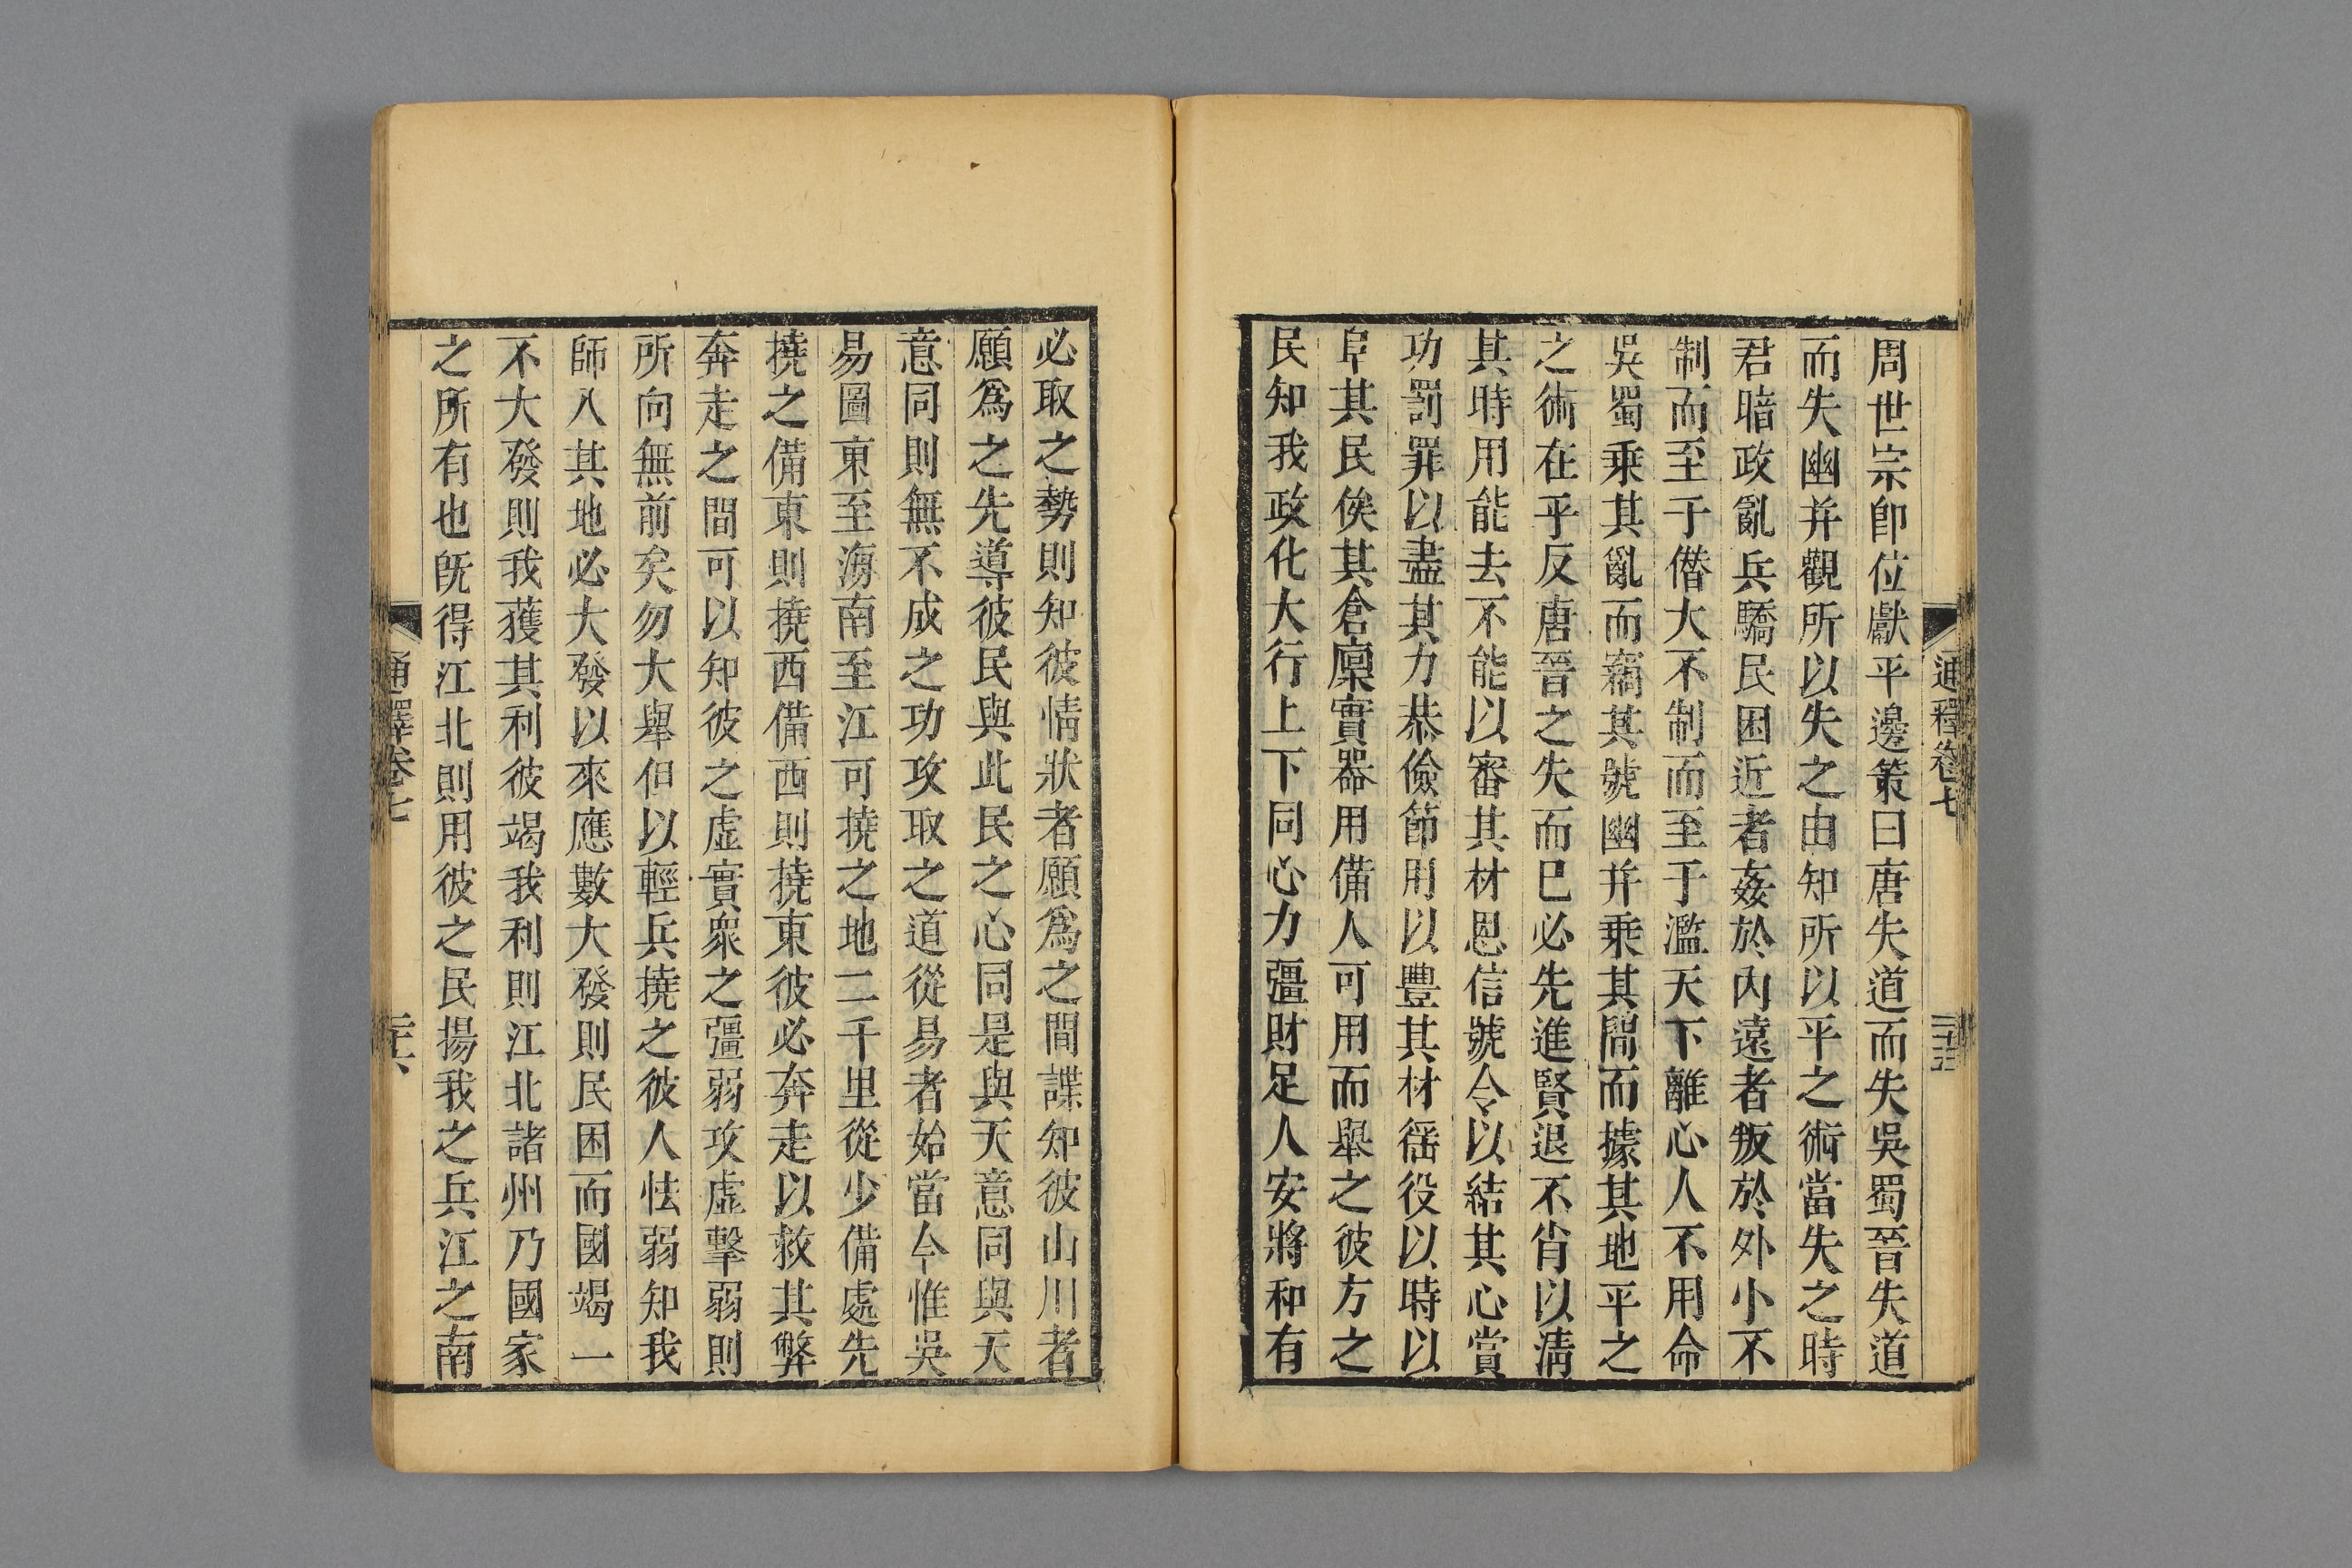 周世宗卽位獻平邊策曰唐失道而失吳蜀晉失道
而失幽并觀所以失之由知所以平之術當失之時
君暗政亂兵驕民困近者姦於內遠者叛於外小不
制而至于僭大不制而至于濫天下離心人不用命
吳蜀乘其亂而竊其號幽并乘其間而據其地平之
之術在乎反唐晉之失而已必先進賢退不肖以清
其時用能去不能以審其材恩信號令以結其心賞
功罰罪以盡其力恭儉節用以豐其材徭役以時以
阜其民俟其倉廩實器用備人可用而舉之彼方之
民知我政化大行上下同心力彊財足人安將和有
通釋卷七
必取之勢則知彼情狀者願爲之間諜知彼山川者
願爲之先導彼民與此民之心同是與天意同與天
意同則無不成之功攻取之道從易者始當今惟吳
易圖東至海南至江可撓之地二千里從少備處先
撓之備東則撓西備西則撓東彼必奔走以救其弊
奔走之間可以知彼之虛實衆之彊弱攻虛擊弱則
所向無前矣勿大舉但以輕兵撓之彼人怯弱知我
師入其地必大發以來應數大發則民困而國竭一
不大發則我獲其利彼竭我利則江北諸州乃國家
之所有也旣得江北則用彼之民揚我之兵江之南
通釋卷七